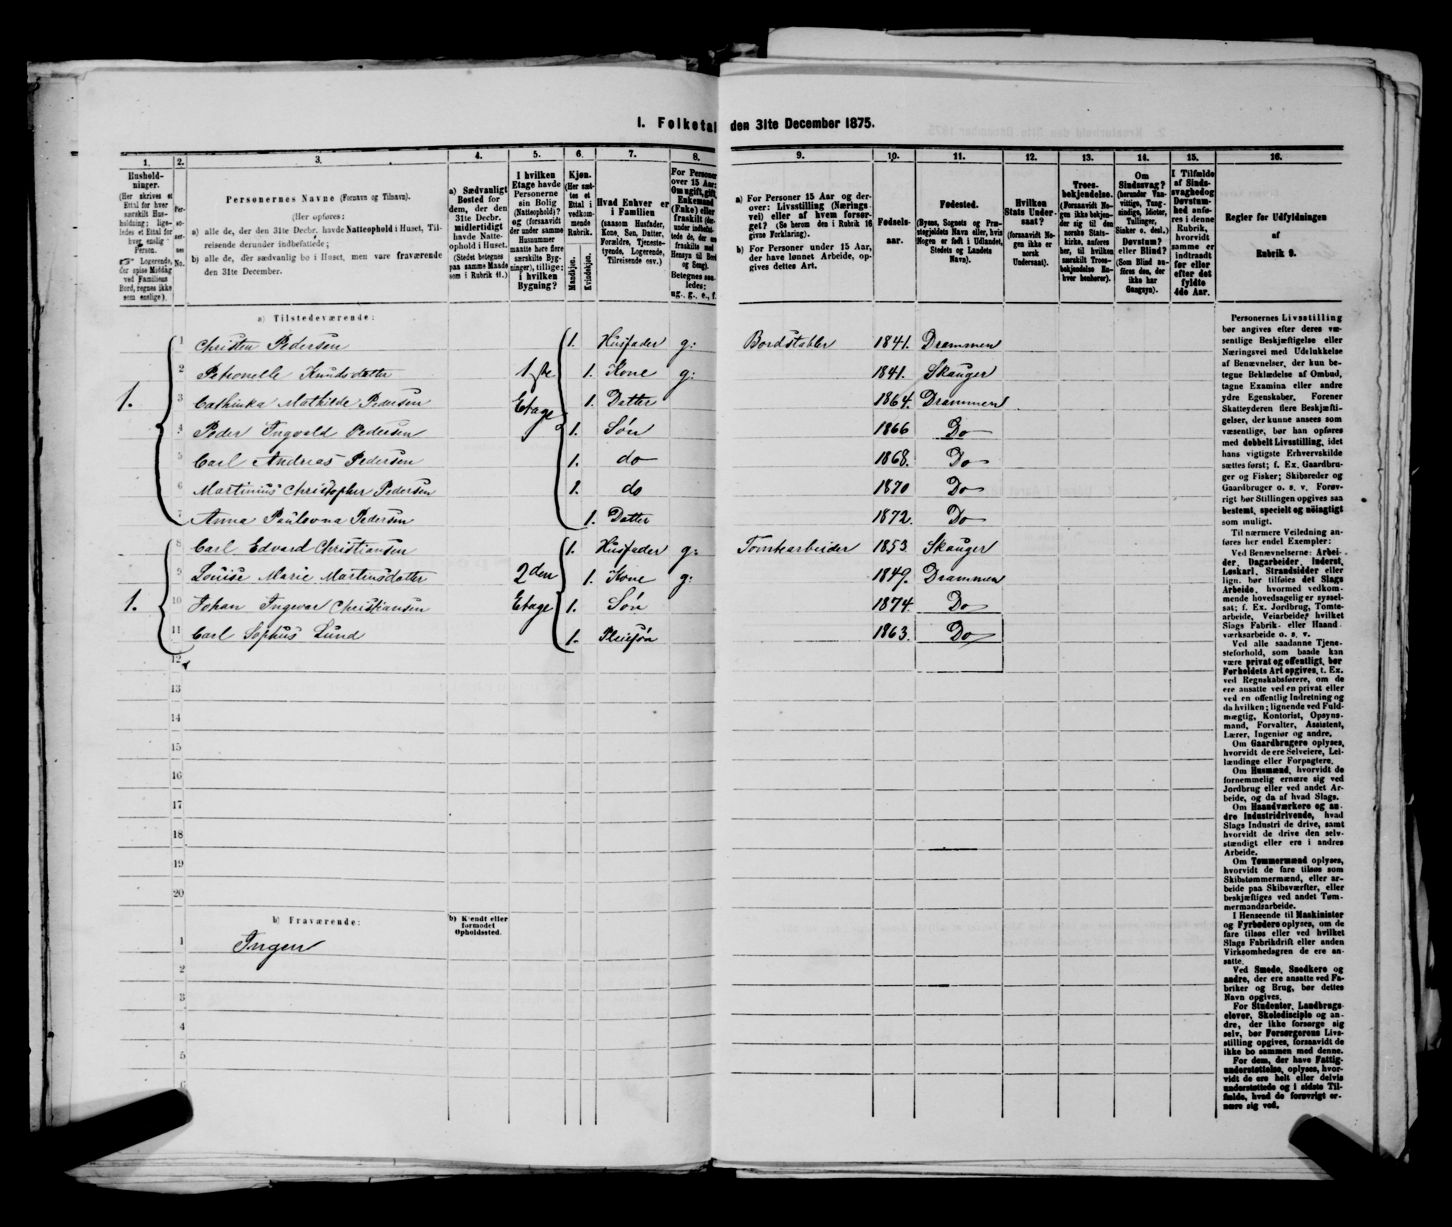 I. Folketal den 31te December 1875.
1. 2. 3. 4. 5. 6. 7. 8. 9. 10. 11. 12. 13. 14. 15. 16.
Personernes Navne (Fornavn og Tilnavn).
(Her opføres:
a) alle de, der den 31te Decbr. havde Natteophold i Huset, Tilreisende derunder indbefattede;
b) alle de, der sædvanlig bo i Huset, men vare fraværende den 31te December.
a) Sædvanligt Bosted for dem, der den 31te Decbr. midlertidigt havde Natteophold i Huset.
Kjøn.
Mandkjøn. Kvindekjøn.
Hvad Enhver er i Familien
(saasom Husfader, Kone, Søn, Datter, Forældre, Tjenestetyende, Logerende, Tilreisende osv.)
a) For Personer 15 Aar og derover: Livsstilling (Næringsvei) eller af hvem forsørget? (Se herom den i Rubrik 16 givne Forklaring).
b) For Personer under 15 Aar, der have lønnet Arbeide, opgives dettes Art.
Fødselsaar.
Fødested.
Hvilken Stats Undersaat?
(forsaavidt Nogen ikke er norsk Undersaat).
Regler for Udfyldningen
af
Rubrik 9.
a) Tilstedeværende:
1 Christen Pedersen 1. Husfader g: Bordstabler 1841. Drammen
2 Petronelle Knudsdatter 1ste 1. Kone g: 1841. Skauger
1. 3 Cathinka Mathilde Pedersen Etage 1. Datter 1864. Drammen
4 Peder Ingvald Pedersen 1. Søn 1866 Do
5 Carl Andreas Pedersen 1. do 1868. Do
6 Martinius Christopher Pedersen 1. do 1870 Do
7 Anna Paulovna Pedersen 1. Datter 1872. Do
8 Carl Edvard Christiansen 1. Husfader g: Tomtearbeider 1853. Skauger
9 Louise Marie Martinsdatter 2den 1. Kone g: 1849. Drammen
1. 10 Johan Ingevar Christiansen Etage 1. Søn 1874 Do
11 Carl Sophus Lund 1. Pleiesøn 1863. Do
12
13
14
15
16
17
18
19
20
b) Fraværende: b) Kjendt eller formodet Opholdssted.
1 Ingen
2
3
4
5
6
Personernes Livsstilling
bør angives efter deres væ-
sentlige Beskjæftigelse eller
Næringsvei med Udelukkelse
af Benævnelser, der kun be-
tegne Beklædelse af Ombud,
tagne Examina eller andre
ydre Egenskaber. Forener
Skatteyderen flere Beskjæfti-
gelser, der kunne ansees som
væsentlige, bør han opføres
med dobbelt Livsstilling, idet
hans vigtigste Erhvervskilde
sættes først; f. Ex. Gaardbru-
ger og Fisker; Skibsreder og
Gaardbruger o. s. v. Forøv-
rigt bør Stillingen opgives saa
bestemt, specielt og nøiagtigt
som muligt.
Til nærmere Veiledning an-
føres her endel Exempler:
Ved Benævnelserne: Arbei-
der, Dagarbeider, Inderst,
Løskarl, Strandsidder eller
lign. bør tilføies det Slags
Arbeide, hvormed vedkom-
mende hovedsagelig er syssel-
sat; f. Ex. Jordbrug, Tomte-
arbeide, Veiarbeide, hvilket
Slags Fabrik- eller Haand-
værksarbeide o. s. v.
Ved alle saadanne Tjene-
steforhold, som baade kan
være privat og offentligt, bør
Forholdets Art opgives, t. Ex.
ved Regnskabsførere, om de
ere ansatte ved en privat eller
ved en offentlig Indretning og
da hvilken; lignende ved Fuld-
mægtig, Kontorist, Opsyns-
mand, Forvalter, Assistent,
Lærer, Ingeniør og andre.
Om Gaardbrugere oplyses,
hvorvidt de ere Selveiere, Lei-
lændinge eller Forpagtere.
Om Husmænd, hvorvidt de
fornemmelig ernære sig ved
Jordbrug eller ved andet Ar-
beide, og da af hvad Slags.
Om Haandværkere og an-
dre Industridrivende, hvad
Slags Industri de drive, samt
hvorvidt de drive den selv-
stændigt eller ere i andres
Arbeide.
Om Tømmermænd oplyses,
hvorvidt de fare tilsøs som
Skibstømmermænd, eller ar-
beide paa Skibsværfter, eller
beskjæftiges ved andet Tøm-
mermandsarbeide.
I Henseende til Maskinister
og Fyrbødere oplyses, om de
fare tilsøs eller ved hvilket
Slags Fabrikdrift eller anden
Virksomhedsgren de ere an-
satte.
Ved Smede, Snedkere og
andre, der ere ansatte ved Fa-
briker og Brug, bør dettes
Navn opgives.
For Studenter, Landbrugs-
elever, Skoledisciple og an-
dre, der ikke forsørge sig
selv, bør Forsørgerens Livs-
stilling opgives, forsaavidt de
ikke bo sammen med denne.
For dem, der have Fattig-
understøttelse, oplyses, hvor-
vidt de ere helt eller delvis
understøttede og i sidste Til-
fælde, hvad de forøvrigt er-
nære sig ved.